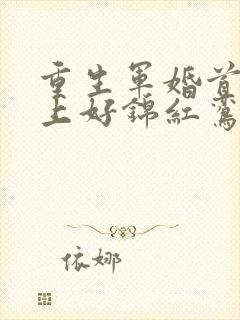 重生军婚首
上好锦红鸾
依娜